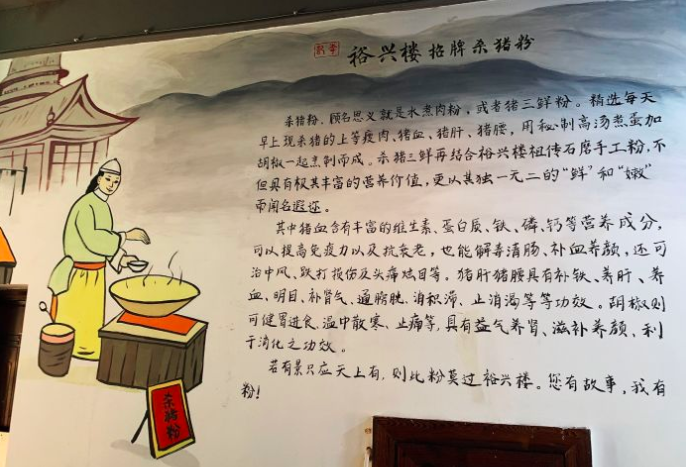 裕兴楼 招牌杀猪粉
杀猪粉，顾名思义就是水煮肉粉，或者猪三鲜粉。精选每天
早上现杀猪的上等瘦肉、猪血、猪肝、猪腰，用秘制高汤煮蛋加
胡椒一起烹制而成。杀猪三鲜再结合裕兴楼祖传石磨手工粉，不
但具有极其丰富的营养价值，更以其独一无二的“鲜”和“嫩”
而闻名遐迩。
其中猪血含有丰富的维生素、蛋白质、铁、磷、钙等营养成分，
可以提高免疫力以及抗衰老，也能解毒清肠、补血养颜，还可
治中风、跌打损伤及头痛眩目等。猪肝猪腰具有补铁、养肝、养
血、明目、补肾气、通膀胱、消积滞、止消渴等等功效。胡椒则
可健胃进食、温中散寒、止痛等，具有益气养肾、滋补养颜、利
于消化之功效。
若有景只应天上有，则此粉莫过裕兴楼。您有故事，我有
粉！
杀猪粉